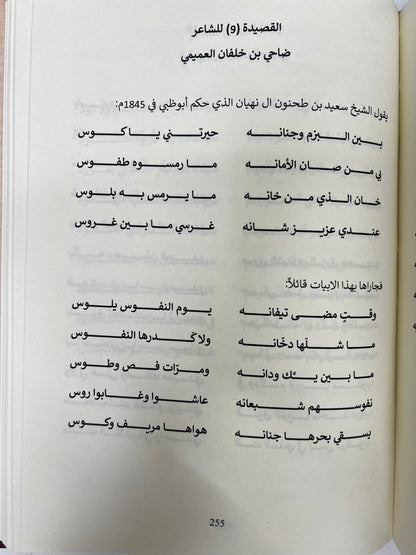 القصيدة (9) للشاعر
ضاحي بن خلفان العميمي
يقول الشيخ سعيد بن طحنون ال نهيان الذي حكم أبوظبي في 1845م:
بين البزم وجنانه حيرتني يا كوس
بي من صان الأمانه ما رمسوه طفوس
خان الذي من خانه ما يرمس به بلوس
عندي عزيز شانه غرسي ما بين غروس
فجاراها بهذا الابيات قائلاً:
وقتٍ مضى تيفانه يوم النفوس يلوس
ما شلّها دخّانه ولا كدرها النفوس
ما بين يتك ودانه ومزات فص وطوس
نفوسهم شبعانه عاشوا وغابوا روس
يسقي بحرها جنانه هواها مريف وكوس
255